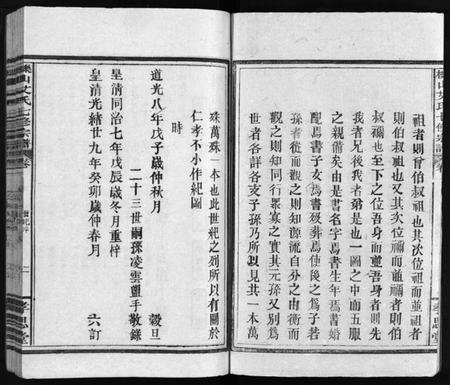 祖者則曾伯叔祖也其次位祖而並祖者
則伯叔祖也又其次位禰而並禰者則伯
叔禰也至下之位吾身而並吾身者則先
我者兄後我者弟是也一圖之中而五服
之親備矣由是書名字焉書生年焉書婚
配焉書子女焉書歿葬焉使後之為子若
孫者從而觀之則知源流自分之由衡而
觀之則知同行衆寡之實其元孫又別為
世者各詳各支子孫乃所以見其一本萬
殊萬殊一本也此世紀之列所以有關於
仁孝不小作紀圖
時
道光八年戊子歲仲秋月 穀旦
二十三世嗣孫凌雲盥手敬錄
皇清同治七年戊辰歲冬月重梓
皇清光緒廿九年癸卯歲仲春月 六訂
李思堂